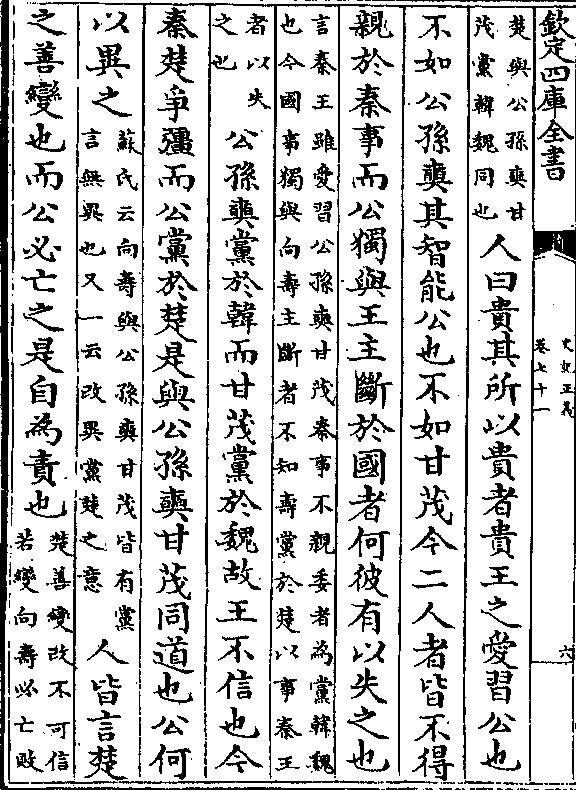 欽定四庫全書
史記正義
卷七十一
六
楚與公孫奭甘
茂黨韓魏同也
人曰貴其所以貴者貴王之愛習公也
不如公孫奭其智能公也不如甘茂今二人者皆不得
親於秦事而公獨與王主斷於國者何彼有以失之也
言秦王雖愛習公孫奭甘茂秦事不親委者為黨韓魏
也今國事獨與向壽主斷者不知壽黨於楚以事秦王
者以失
之也
公孫奭黨於韓而甘茂黨於魏故王不信也今
秦楚爭彊而公黨於楚是與公孫奭甘茂同道也公何
以異之
蘇氏云向壽與公孫奭甘茂皆有黨
言無異也又一云改異黨楚之意
人皆言楚
之善變也而公必亡之是自為責也
楚善變改不可信
若變向壽必亡敗